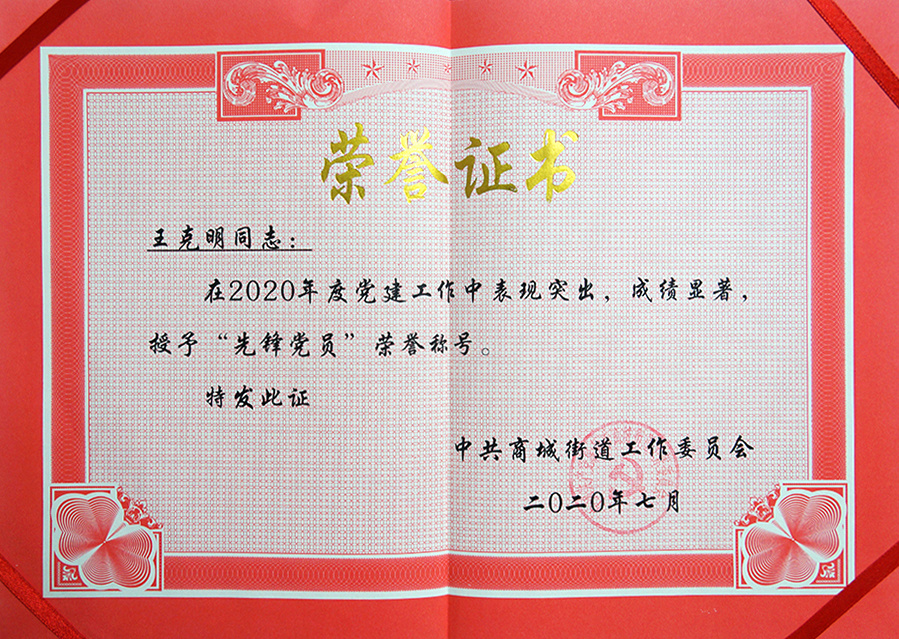 荣誉证书
王克明同志：
在2020年度党建工作中表现突出，成绩显著，
授予“先锋党员”荣誉称号。
特发此证
中共商城街道工作委员会
二〇二〇年七月